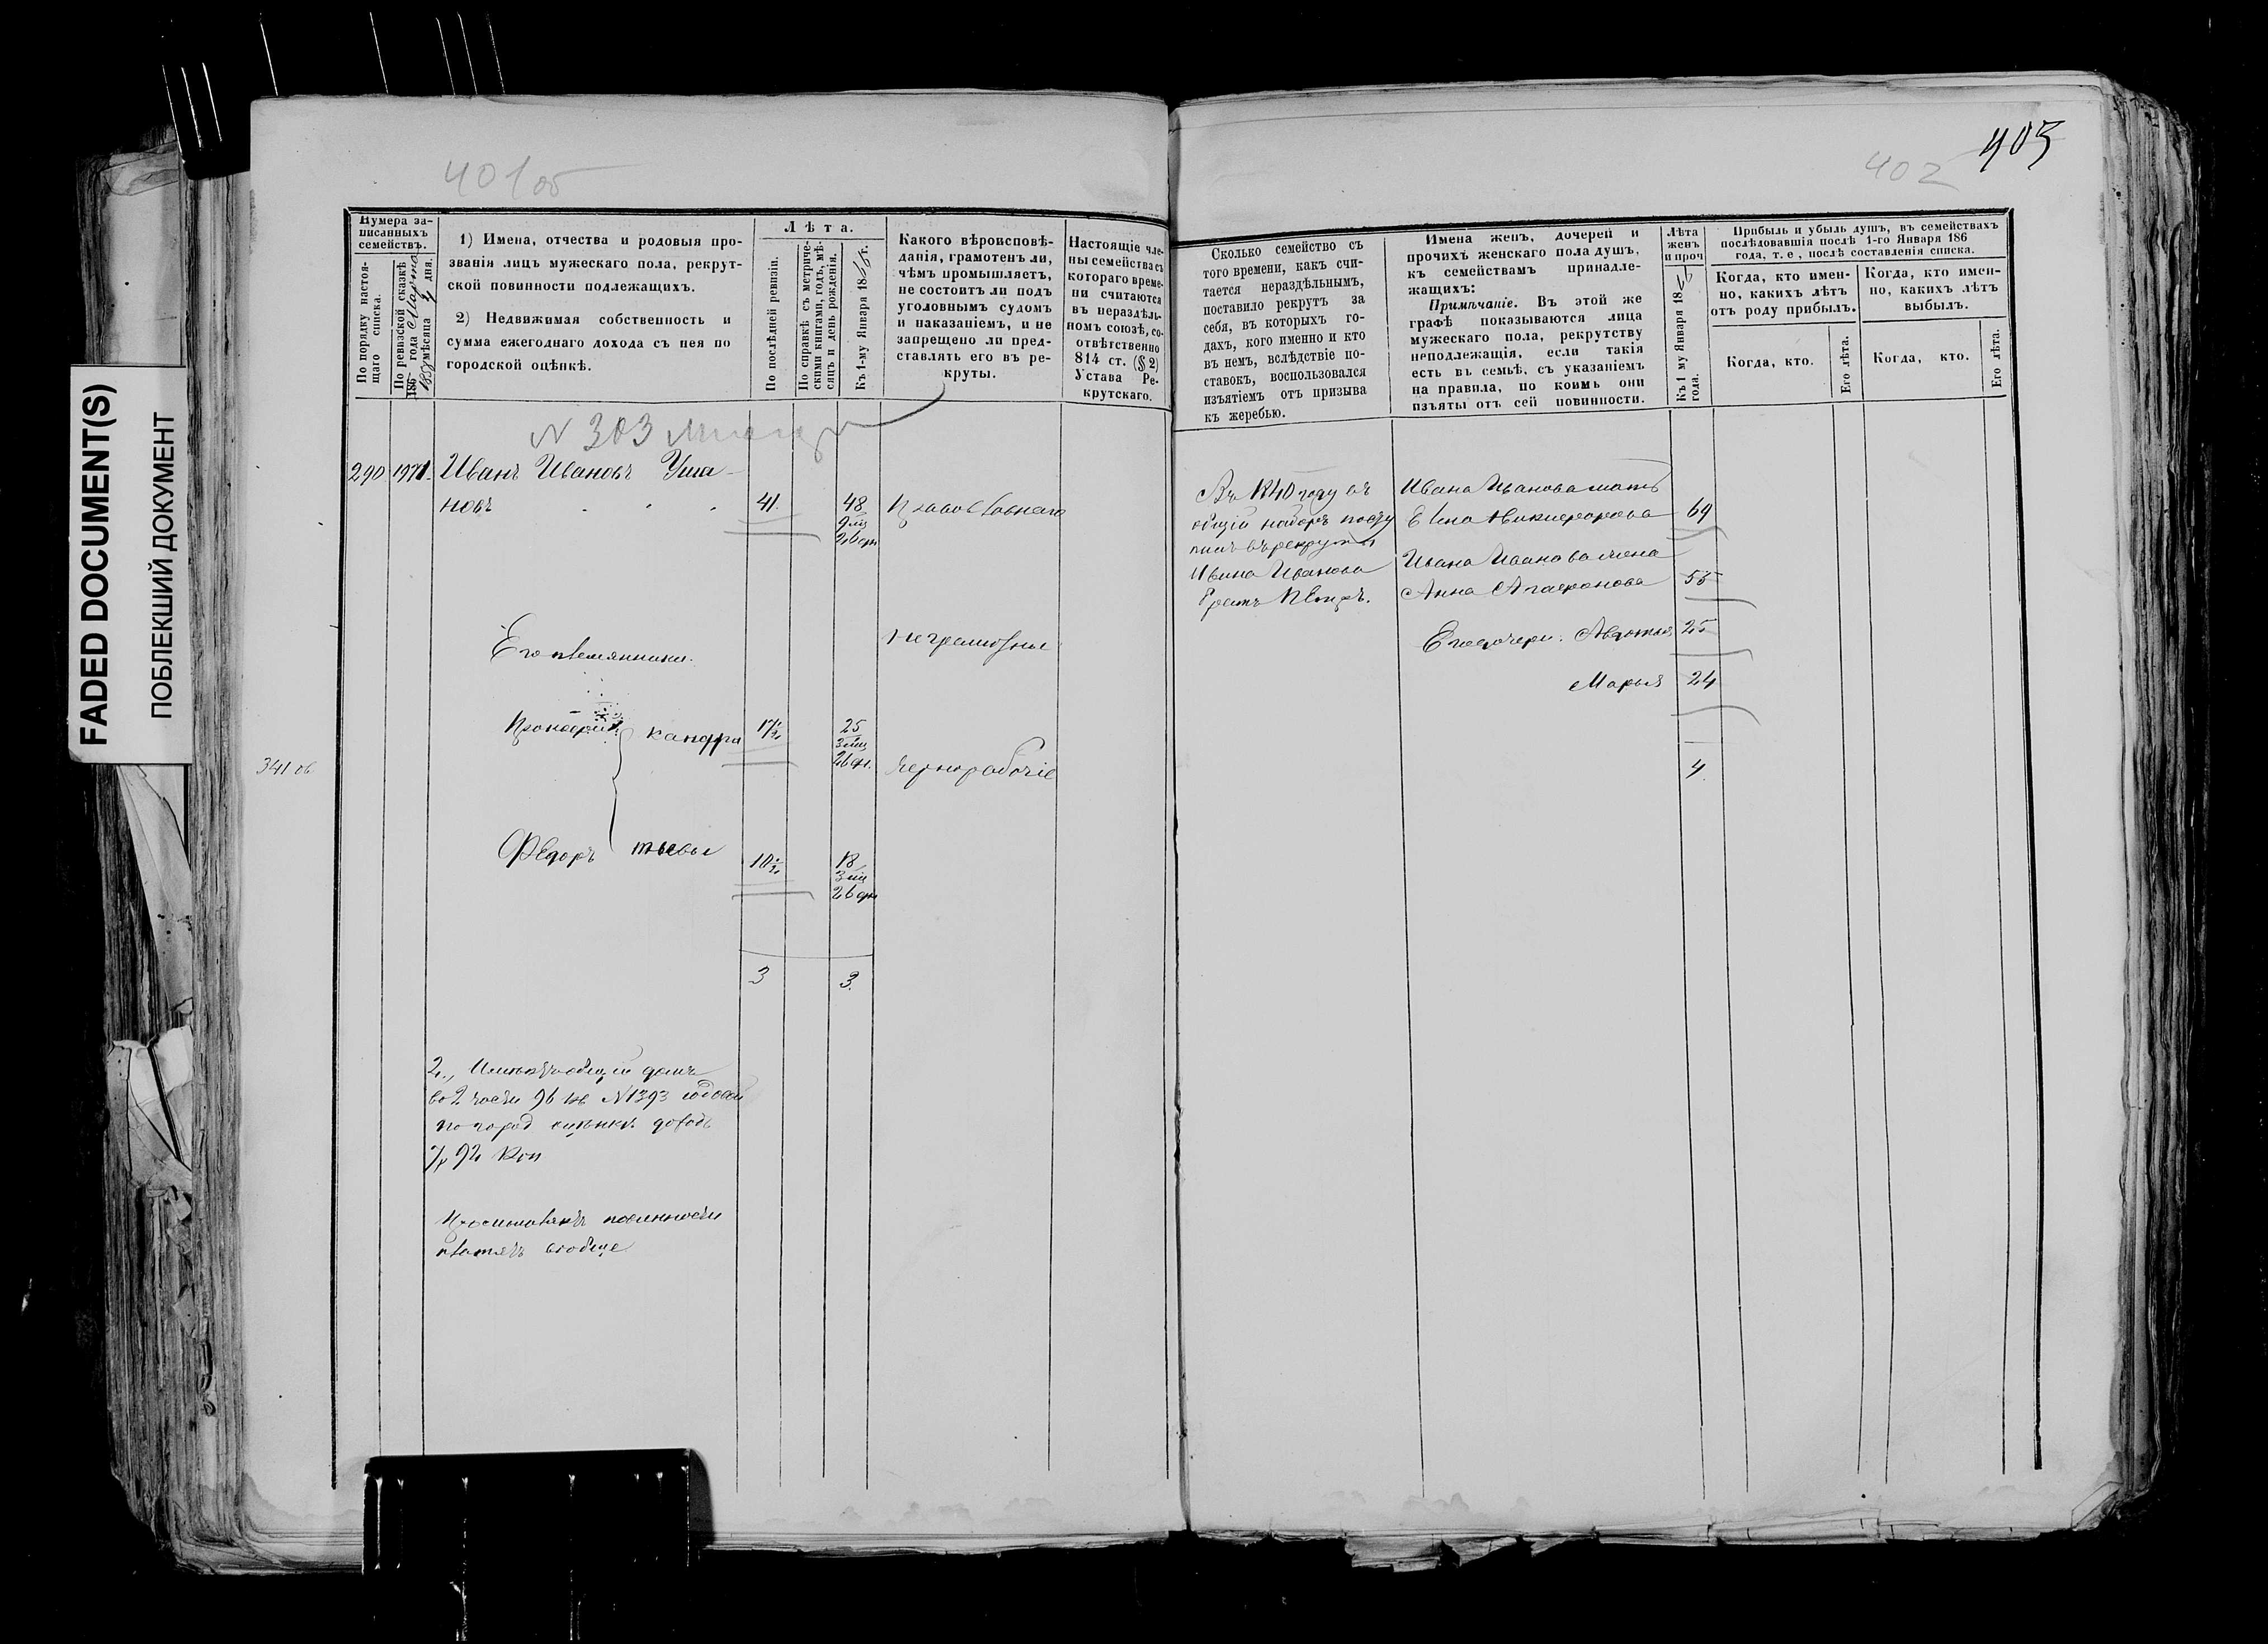 FADED DOCUMENT(S)
ПОБЛЕКШИЙ ДОКУМЕНТ
401 об
Нумера за-
писанныхъ
семействъ.
По порядку настоя-
щаго списка.
По ревизской сказкѣ
186 года Марта
1858 мѣсяца дня.
1) Имена, отчества и родовыя про-
званія лицъ мужескаго пола, рекрут-
ской повинности подлежащихъ.
2) Недвижимая собственность и
сумма ежегоднаго дохода съ нея по
городской оцѣнкѣ.
Лѣта.
По послѣдней ревизіи.
По справкѣ съ метриче-
скими книгами, годъ, мѣ-
сяцъ и день рожденія.
Къ 1-му Января 186 г.
Какого вѣроисповѣ-
данія, грамотенъ ли,
чѣмъ промышляетъ,
не состоитъ ли подъ
уголовнымъ судомъ
и наказаніемъ, и не
запрещено ли пред-
ставлять его въ ре-
круты.
Настоящіе чле-
ны семейства съ
котораго време-
ни считаются
въ нераздѣль-
номъ союзѣ, со-
отвѣтственно
814 ст. (§ 2)
Устава Ре-
крутскаго.
N 303
290 1971. Иванъ Ивановъ Уша-
новъ 41. 48 Православнаго
9 мц
26 дн
Его племянники. неграмотные
Кандра
17½ 25
3 мц
26 дн.
341 об
чернорабочіе
Федоръ тьевы 10½ 18
3 мц
26 дн
3 3.
2., общій домъ
во 2 части 96 кв N 1393 годовой
по город оцѣнкѣ доходъ
7 р 92 коп
повинности
платятъ вообще
402
403
Сколько семейство съ
того времени, какъ счи-
тается нераздѣльнымъ,
поставило рекрутъ за
себя, въ которыхъ го-
дахъ, кого именно и кто
въ немъ, вслѣдствіе по-
ставокъ, воспользовался
изъятіемъ отъ призыва
къ жеребью.
Имена женъ, дочерей и
прочихъ женскаго пола душъ,
къ семействамъ принадле-
жащихъ:
Примѣчаніе. Въ этой же
графѣ показываются лица
мужескаго пола, рекрутству
неподлежащія, если такія
есть въ семьѣ, съ указаніемъ
на правила, по коимъ они
изъяты отъ сей повинности.
Лѣта
женъ
и проч
Къ 1 му Января 186
года.
Прибыль и убыль душъ, въ семействахъ
послѣдовавшія послѣ 1-го Января 186
года, т. е., послѣ составленія списка.
Когда, кто имен-
но, какихъ лѣтъ
отъ роду прибылъ.
Когда, кто.
Его лѣта.
Когда, кто имен-
но, какихъ лѣтъ
выбылъ.
Когда, кто.
Его лѣта.
Въ 1840 году въ
общій наборъ посту
пилъ въ рекруты
Ивана Иванова
братъ Петръ.
Ивана Иванова мать
Елена Никифорова 69
Ивана Иванова жена
Анна Агафонова 55
Его дочери: Авдотья 25
Марья 24
4.